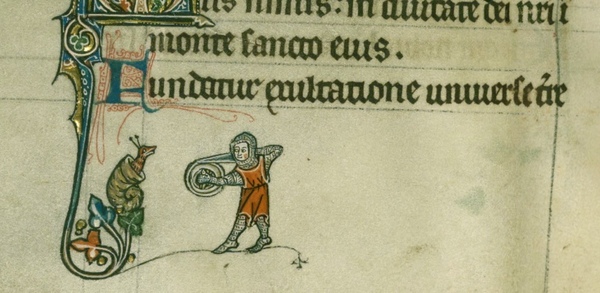 nimis: in ciuitate dei nr̃i i
monte sancto eius.
Fundatur exultatione uniuerse t̃re